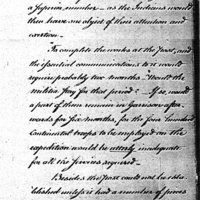 a superior number — as the Indians would
then have one object of their attention and
exertion.
To complete the works at the Post, and
the essential communications to it would
require probably two months — Would the
militia stay for that period? — If so, would
a part of them remain in Garrison after-
wards for six months, for the four hundred
Continental troops to be employed on the
expedition would be utterly inadequate
for all the services required —
Besides the post could not be esta-
blished unless it had a number of pieces